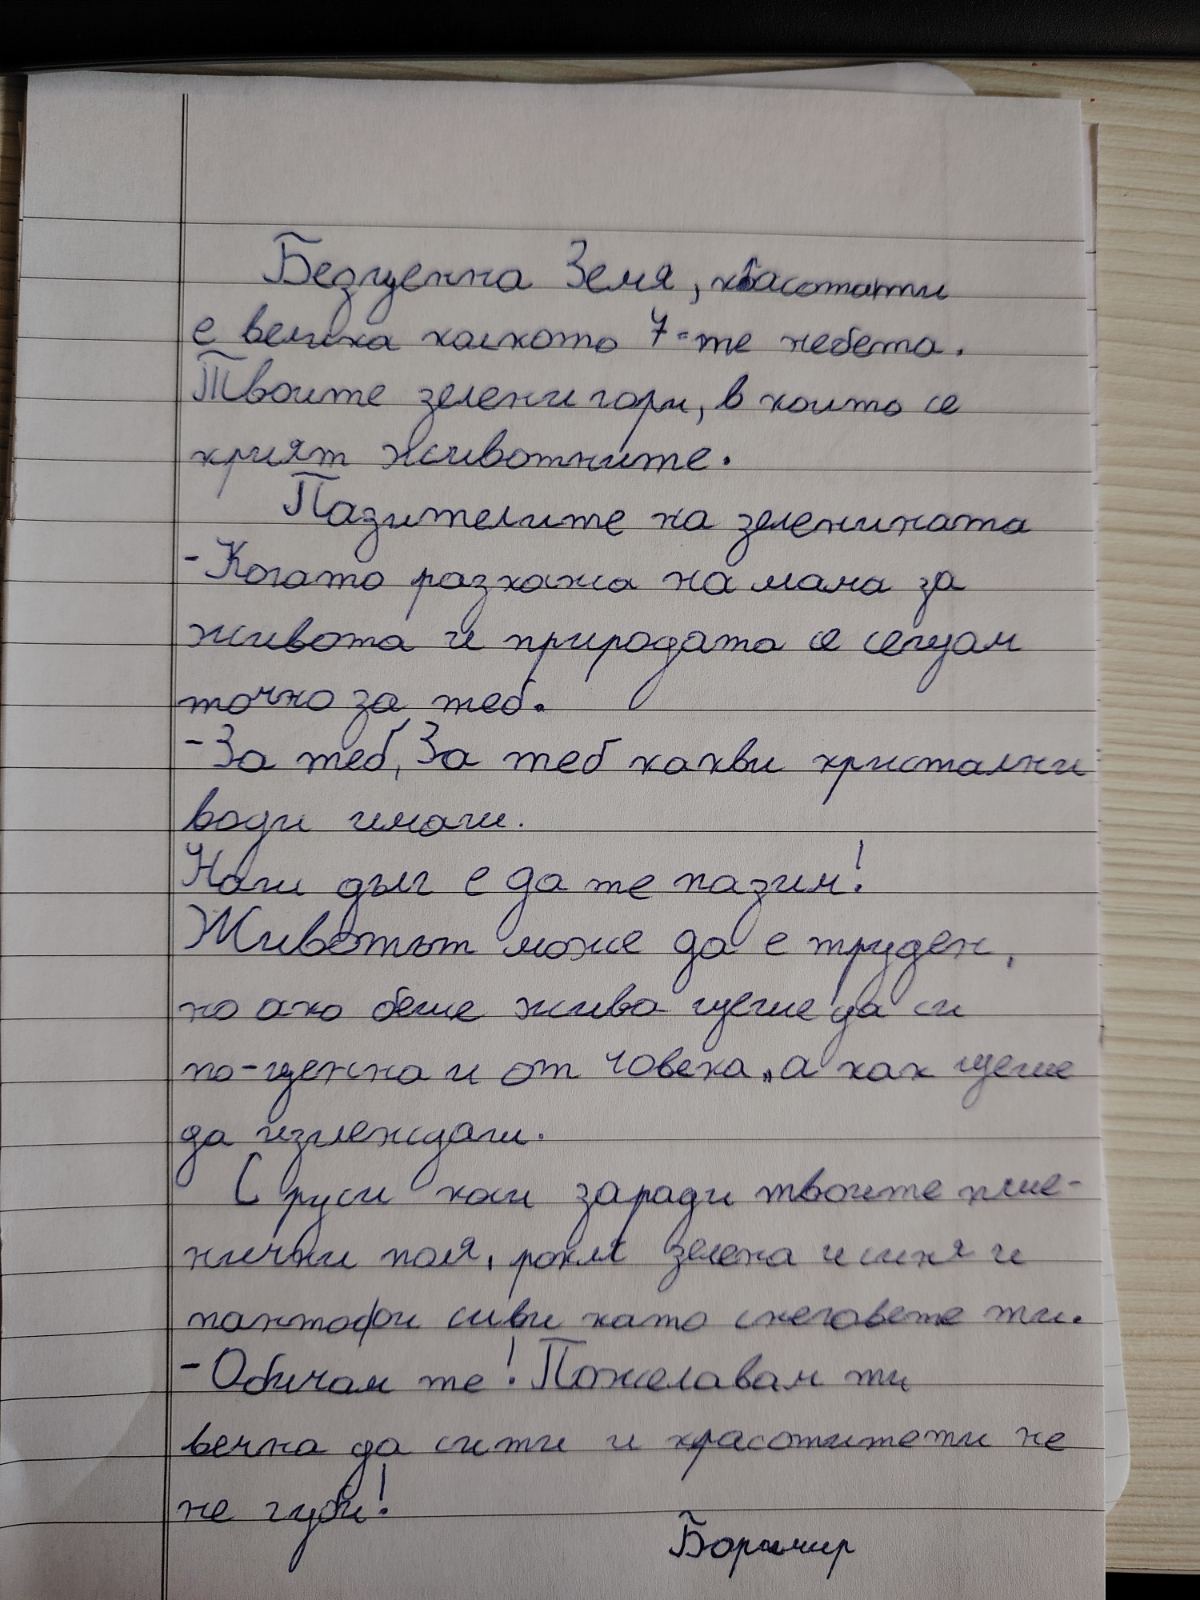 Безценна Земя, красотати
е велика колкото 7-те небета.
Твоите зелени гори, в които се
крият животните.
Пазителите на зеленината
-Когато разкажа на мама за
живота и природата се сещам
точно за теб.
-За теб, За теб какви кристални
води имаш.
Наш дълг е да те пазим!
Животът може да е труден,
но ако беше жива щеше да си
по-ценна и от човека, а как щеше
да изглеждаш.
С руси коси заради твоите пше-
нични поля, рокля зелена и синя и
пантофи сиви като снеговете ти.
-Обичам те! Пожелавам ти
вечна да си ти и красотитети не
не губи!
Боримир